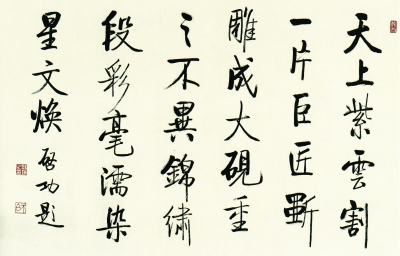 天上紫雲割
一片巨匠斲
雕成大硯重
之不異錦繡
段彩毫濡染
星文焕 啓功題